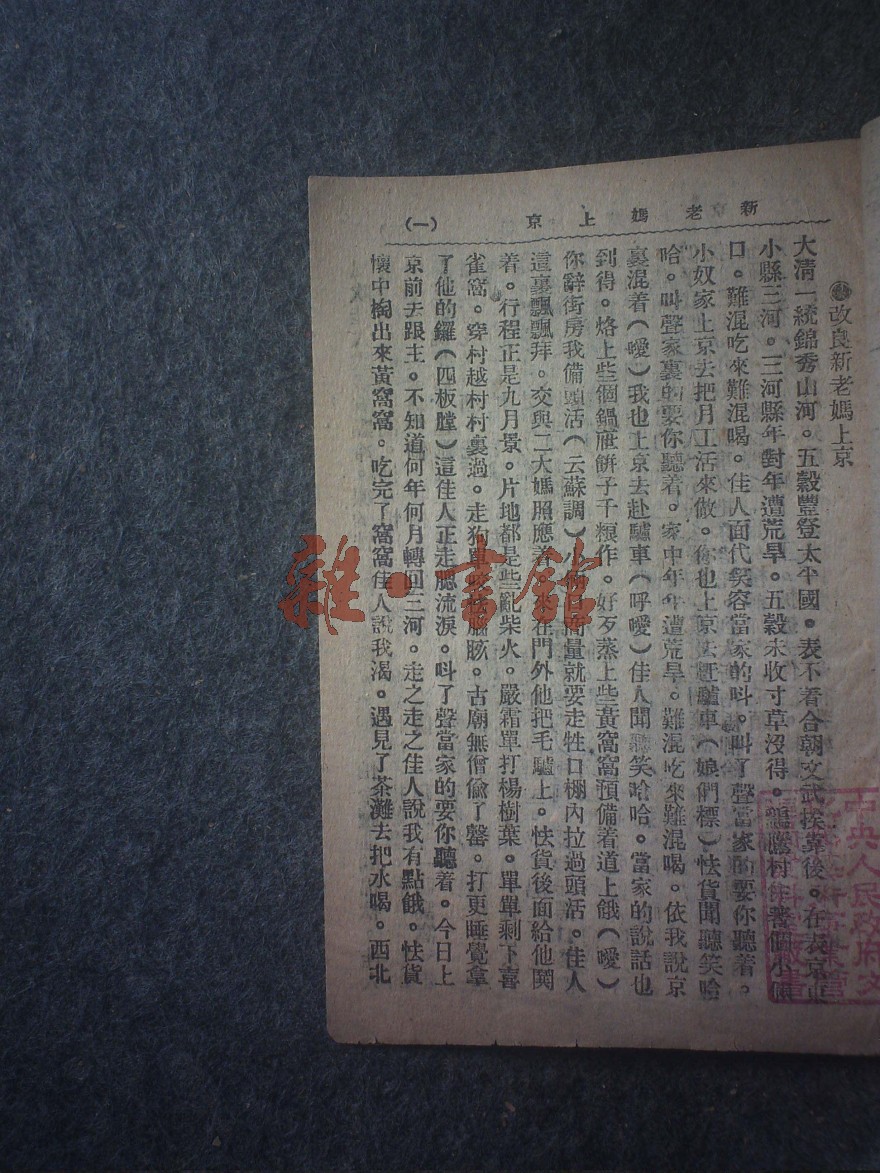 新老媽上京
(一)
改良新老媽上京
大清一統錦秀山河。五穀豐登太平國。表不着合朝文武挨靠後。在表京東
小縣三河。三河縣年對年遭荒旱。五穀未收寸草沒得。村住著個小倆
口。難混吃來難混喝。佳人面代笑容當家的呌。叫了聲當家的要你聽着。
小奴家上京去把月工活來做。你也上京去赶驢車(娘們標)怯貨聞聽笑哈
哈。叫聲家裏的要你聽着。家中年年遭荒旱。難混吃來難混喝。依我說京
裏混着(噯)我也上京去赴驢車(呼噯)佳人聞聽笑哈哈。當家的說話也
到得。烙上些個鍋餅子干粮作。好歹蒸上些黃窩窩預備着道上餓(噯)
你辭街房我備頭活(云蘇調)小倆口商量就要走牲口棚內拉過頭活。佳人
這裏飄飄拜。交與二大媽照應着。來在門外他把毛驢上。怯貨後面給他
着。行程正是九月景。片地都是些亂柴火。嚴霜單打楊樹葉。單單剩下喜
雀窩。穿村越村村裏過。走狗單咬怯腦胲。古廟無僧偷了罄。打更睡覺拿
了他的鑼(四板膛)這佳人正走腮流淚。呌了聲當家的要你聽着。今日上
京前去跟主。不知道何年何月轉回三河。走之走之佳人說我有點餓。怯貨
懷中掏出來黃窩窩。吃完了窩窩佳人說我渴。遇見了茶灘去把水喝。西北
中央人民政府文
雜·書館